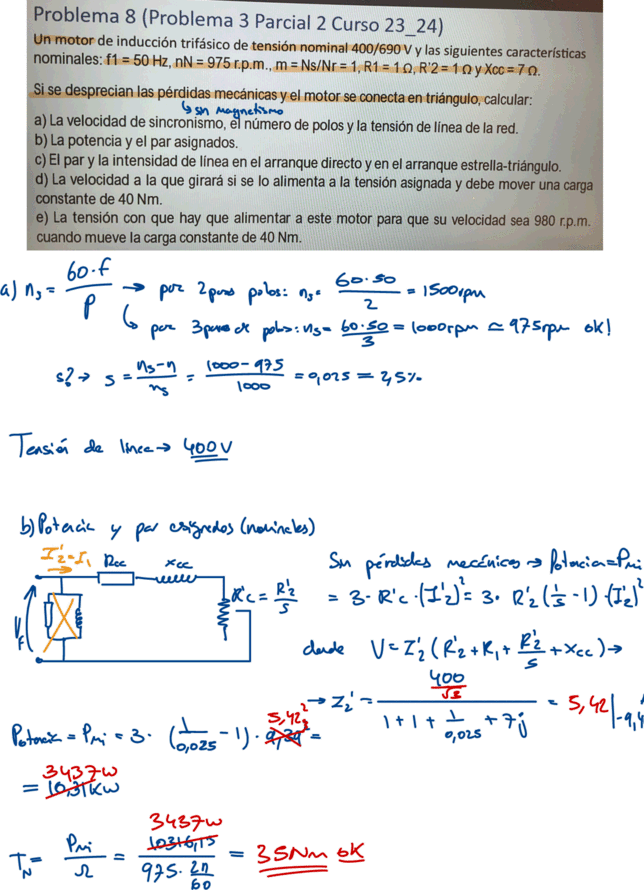 Problema 8 (Problema 3 Parcial 2 Curso 23_24)
Un motor de inducción trifásico de tensión nominal 400/690 V y las siguientes características
nominales: f1 = 50 Hz, nN = 975 r.p.m., m = Ns/Nr = 1, R1 = 1 Ω, R'2 = 1 Ω y Xcc = 7 Ω.
Si se desprecian las pérdidas mecánicas y el motor se conecta en triángulo, calcular:
↳ sin magnetismo
a) La velocidad de sincronismo, el número de polos y la tensión de línea de la red.
b) La potencia y el par asignados.
c) El par y la intensidad de línea en el arranque directo y en el arranque estrella-triángulo.
d) La velocidad a la que girará si se lo alimenta a la tensión asignada y debe mover una carga
constante de 40 Nm.
e) La tensión con que hay que alimentar a este motor para que su velocidad sea 980 r.p.m.
cuando mueve la carga constante de 40 Nm.
a) ns = 60·f / P → por 2 pares polos: ns = 60·50 / 2 = 1500rpm
↳ por 3 pares de polos: ns = 60·50 / 3 = 1000rpm ≃ 975rpm ok!
s? → s = ns-n / ns = 1000-975 / 1000 = 0,025 = 2,5%
Tensión de línea → 400V
b) Potencia y par asignados (nominales)
I'2 = I1 Rcc xcc
Vf
R'c = R'2 / s
Sin pérdidas mecánicas → Potencia = Pmi
= 3· R'c · (I'2)² = 3· R'2 (1/s - 1) · (I'2)²
donde V = I'2 (R'2 + R1 + R'2/s + xcc) →
→ I2' = 400/√3 / 1+1+ 1/0,025 + 7j = 5,42 |-9,4
Potencia = Pmi = 3· (1/0,025 - 1) · 5,42² =
3437w
= 10,31Kw
3437w
TN = Pmi / Ω = 10316,15 / 975· 2π/60 = 35Nm ok